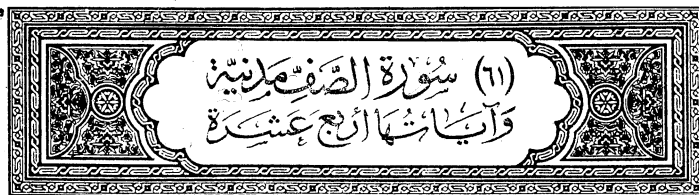 (٦١) سُورَةُ الصَّفِّ مَدَنِيَّة
وَآيَاتُهَا أَرْبَعَ عَشِرَة